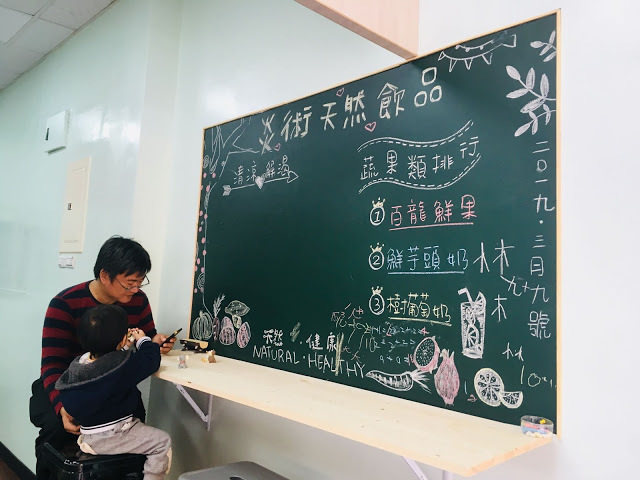 炎術天然飲品
清涼解渴
蔬果類排行
① 百龍鮮果
② 鮮芋頭奶
③ 樹葡萄奶
二〇一九.三月九號
天然.健康
NATURAL.HEALTHY